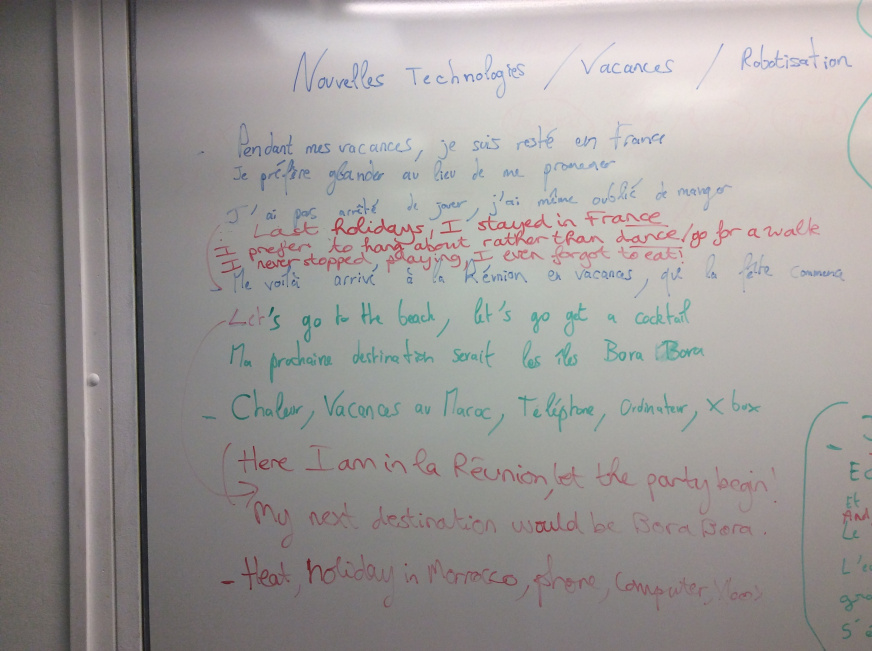 Nouvelles Technologies / Vacances / Robotisation
- Pendant mes vacances, je suis resté en France
Je préfère glander au lieu de me promener
J'ai pas arrêté de jouer, j'ai même oublié de manger
Last holidays, I stayed in France
I prefer to hang about rather than dance/go for a walk
I never stopped playing, I even forgot to eat!
- Me voilà arrivé à la Réunion en vacances, que la fête commence
Let's go to the beach, let's go get a cocktail
Ma prochaine destination serait les îles Bora Bora
- Chaleur, Vacances au Maroc, Téléphone, Ordinateur, X box
Here I am in la Réunion, let the party begin!
My next destination would be Bora Bora.
- Heat, holiday in Morrocco, phone, computer, Xbox
-
Et
And
Le
L'e
gra
S'a